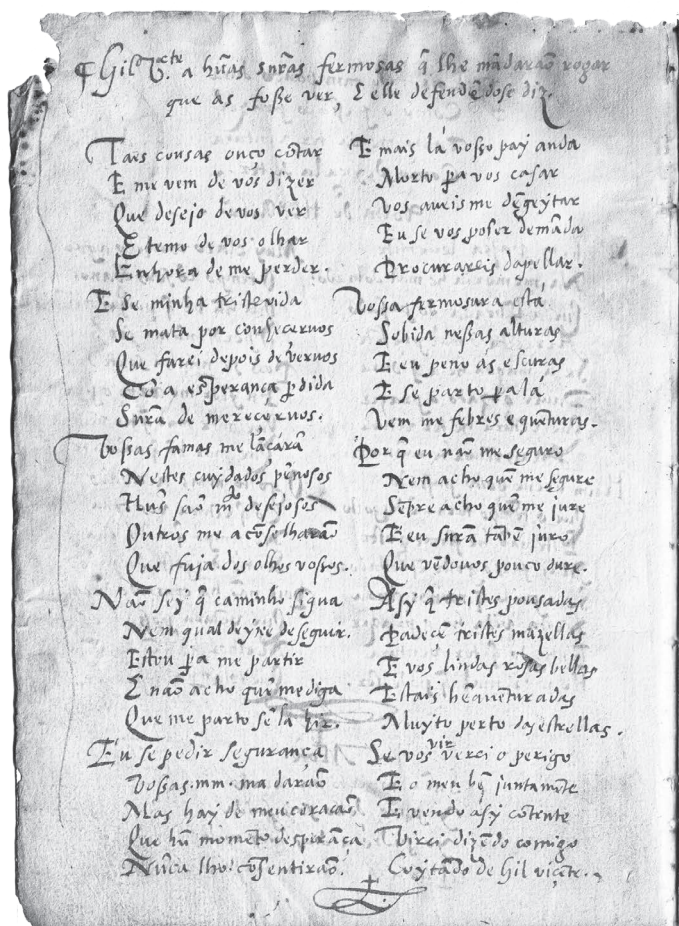 Gil Vcte a hũas sñras fermosas q̃ lhe mãdarão rogar
que as fosse ver, E elle defendẽdose diz.
Taes cousas ouço cõtar
E me vem de vos dizer
Que desejo de vos ver
E temo de vos olhar
Enhora de me perder.
E se minha triste vida
Se mata por conhecervos
Que farei depois de vervos
Cõ a esperança p̃dida
Sñra de merecervos.
Vossas famas me lãçarã
Nestes cuydados penosos
Hũs são mto desejosos
Outros me acõselharão
Que fuja dos olhos vossos.
Não sey q̃ caminho sigua
Nem qual deyxe de seguir.
Estou p̃a me partir
E não acho quẽ me diga
Que me parto sẽ la hir.
Eu se pedir segurança
Vossas .mm. ma darão
Mas hay de meu coração
Que hũ momẽto desperãça
Nũca lho cõsentirão.
E mais lá vosso pay anda
Morto p̃a vos casar
Vos aveis me dẽgeytar
Eu se vos poser demãda
Procurareis dapellar.
Vossa fermosura está
Sobida nessas alturas
E eu peno ás escuras
E se parto p̃a lá
Vem me febres e quẽturas.
Por q̃ eu não me seguro
Nem acho quẽ me segure
Sẽpre acho quẽ me jure
E eu sñra tabẽ juro
Que vẽdovos pouco dure.
Asy q̃ tristes pousadas
Padecẽ tristes mazellas
E vos lindas rosas bellas
Estais bẽaventuradas
Muyto perto das estrellas.
Se vos vir verei o perigo
E o meu bẽ juntamẽte
E vendo asy cõtente
Virei dizẽdo comigo
Coytado de Gil viçẽte.